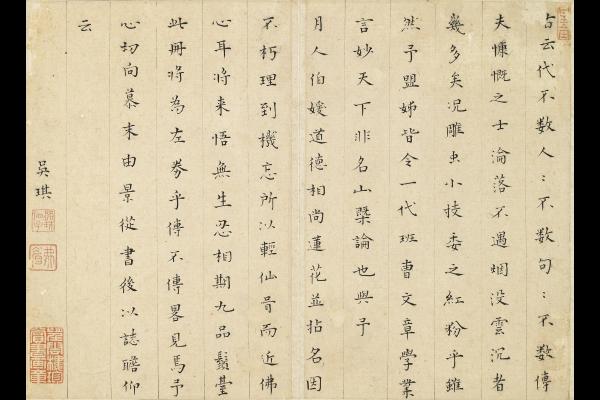 古云代不数人〻不数句〻不数傳
夫慷慨之士淪落不遇烟没雲沉者
幾多矣况雕虫小技委之紅粉乎雖
然予盟姊皆令一代班曹文章學業
言妙天下非名山槩論也與予
月人伯媛道德相尚蓮花並拈名因
不朽理到機忘所以輕仙骨而近佛
心耳将来悟無生忍相期九品鬚臺
此冊将為左券乎傳不傳畧見焉予
心切向慕末由景從書後以誌瞻仰
云
吳琪